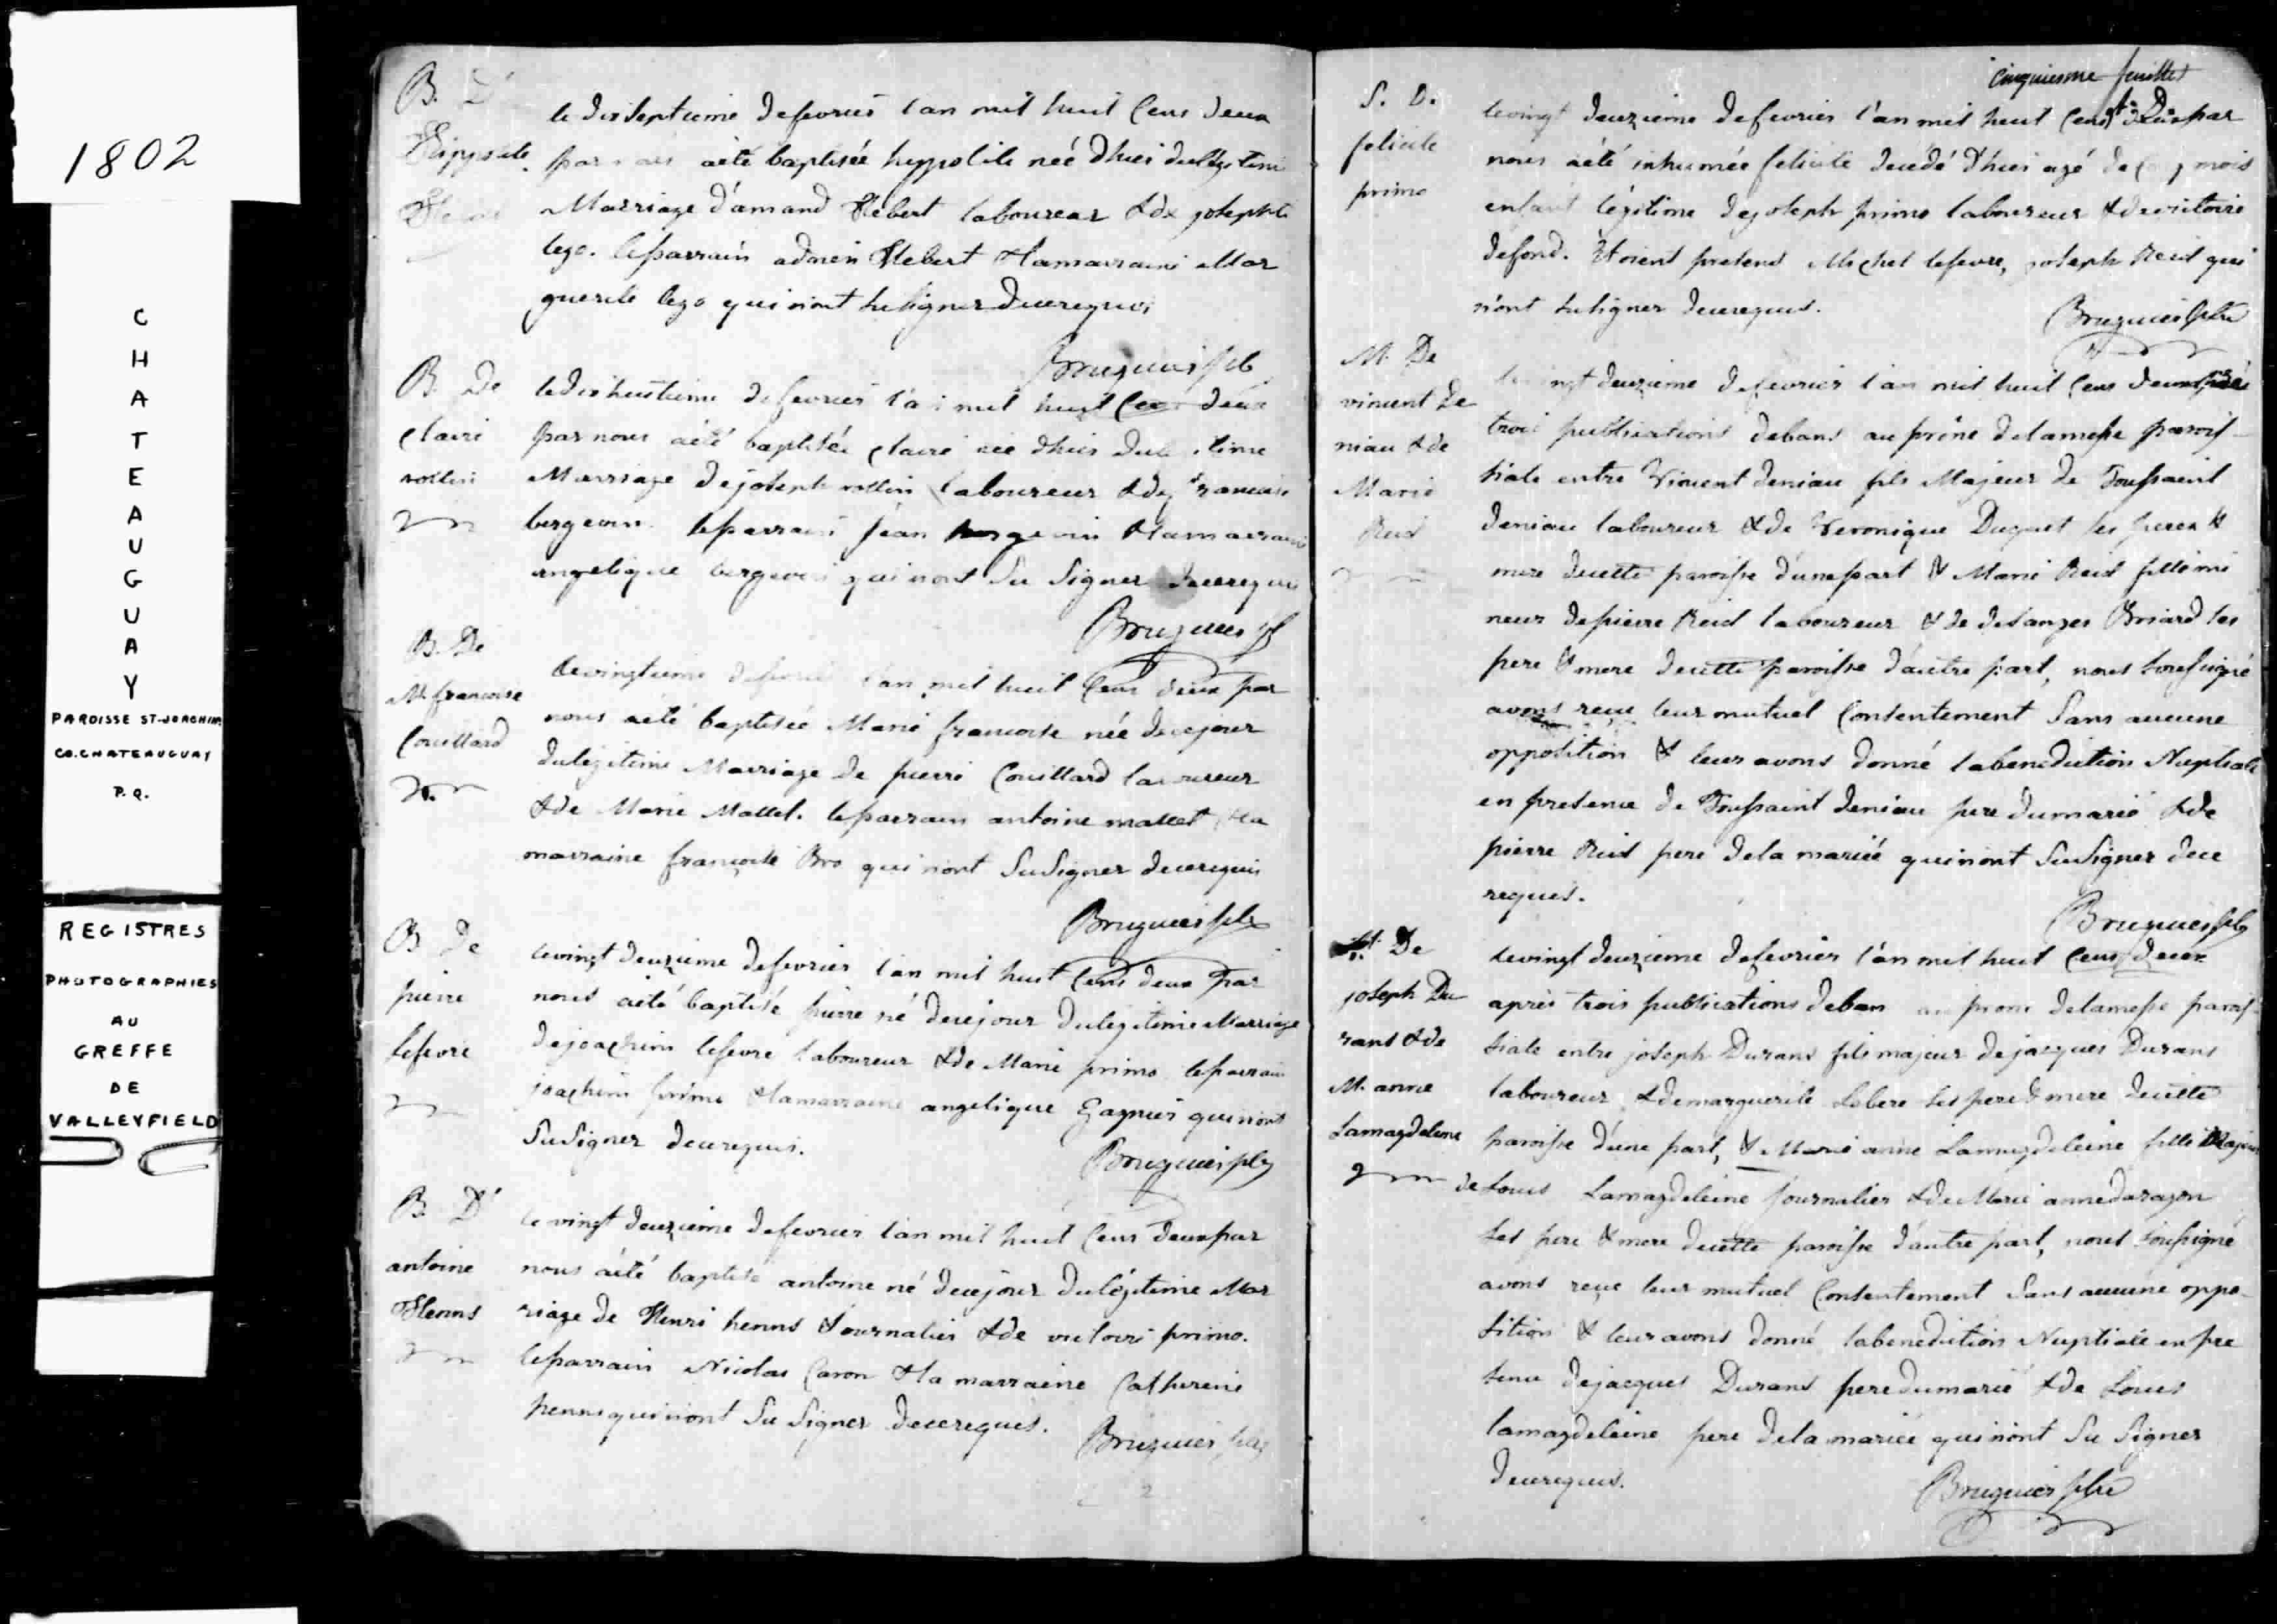 1802
CHATEAUGUAY
PAROISSE ST-JOACHIM
CO. CHATEAUGUAY
P.Q.
REGISTRES
PHOTOGRAPHIES
AU
GREFFE
DE
VALLEYFIELD
B. D'
Hippolite
le dixseptieme defevrier l'an mil huit Cens deux
par aété baptisée hyppolite néé d'hier dulegitime
Marriage d'amand Hebert laboureur &de josephte
lego. leparrain adrien Hebert &lamarraine Mar
guerite lego qui n'ont Susigner decerequis
Bruguier ptr
B. De
Claire
rollin
ledixhuitieme defevrier l'an mil huit Cens deux
par nous aété baptisée Claire née d'hier du
Marriage dejoseph rollin laboureur &de francoise
bergevin. leparrain jean bergevin &lamarraine
angelique bergevin qui n'ont Su Signer decerequis
Bruguier
B. De
M. francoise
Couillard
levingtieme l'an mil huit Cens deux par
nous aété baptisée Marie francoise néé decejour
dulegitime Marriage de pierre Couillard laboureur
&de Marie Mallet. leparrain antoine mallet &la
marraine françoise Bro qui n'ont SuSigner decerequis
Bruguier ptr
B De
pierre
lefevre
levingt deuzieme defevrier l'an mil huit Cens deux par
nous aété baptisé pierre né decejour dulegitime Marriage
dejoachim lefevre laboureur &de Marie primo leparrain
joachim primo &lamarraine angelique Gagnier qui n'ont
SuSigner decerequis.
Bruguier ptr
B. D'
antoine
Henns
le vingt deuzieme defevrier l'an mil huit Cens deux par
nous aété baptisé antoine né decejour dulégitime Mar
riage de Henri henns Journalier &de victoire primo.
leparrain Nicolas Caron &la marraine Catherine
henns qui n'ont Su Signer decerequis.
Bruguier
cinquiesme feuillet
S. D.
felicite
primo
levingt deuzieme defevrier l'an mil huit Cens deux par
nous aété inhumée felicité decédé d'hier agé de mois
enfant légitime dejoseph primo laboureur &devictoire
defond. Etoient presens Michel lefevre, joseph Reid qui
n'ont Susigner decerequis.
Bruguier ptre
M. De
vincent De
niau &de
Marie
Reid
deuzieme defevrier l'an mil huit Cens deux
trois publications debans au prône delamesse parois-
siale entre Vincent deniau fils Majeur de Toussaint
deniau laboureur &de Veronique Duquet ses peres &
mere decette paroisse d'une part & Marie Reid fille mi
neur depierre Reid laboureur & de desanges Briard ses
pere & mere decette paroisse d'autre part, nous sousigné
avons reçue leur mutuel Consentement Sans aucune
opposition & leur avons donné labenediction Nuptiale
en presence de Toussaint deniau pere dumarié &de
pierre Reid pere dela mariéé qui n'ont SuSigner dece
requis.
Bruguier ptr
M. De
joseph Du
rans &de
M. anne
Lamagdeleine
levingt deuzieme defevrier l'an mil huit Cens deux
après trois publications deban au prone delamesse parois-
siale entre joseph Durans fils majeur dejacques Durans
laboureur &demarguerite Lebere ses pere & mere decette
paroisse d'une part, & Marie anne Lamagdeleine fille Majeur
de Louis Lamagdeleine journalier &de Marie anne daragon
ses pere & mere decette paroisse d'autre part, nous sousigné
avons reçue leur mutuel Consentement Sans aucune oppo-
sition & leur avons donné labenediction Nuptiale en pre
sence dejacques Durans pere dumarié &de Louis
lamagdeleine pere dela mariéé qui n'ont Su Signer
decerequis.
Bruguier ptre